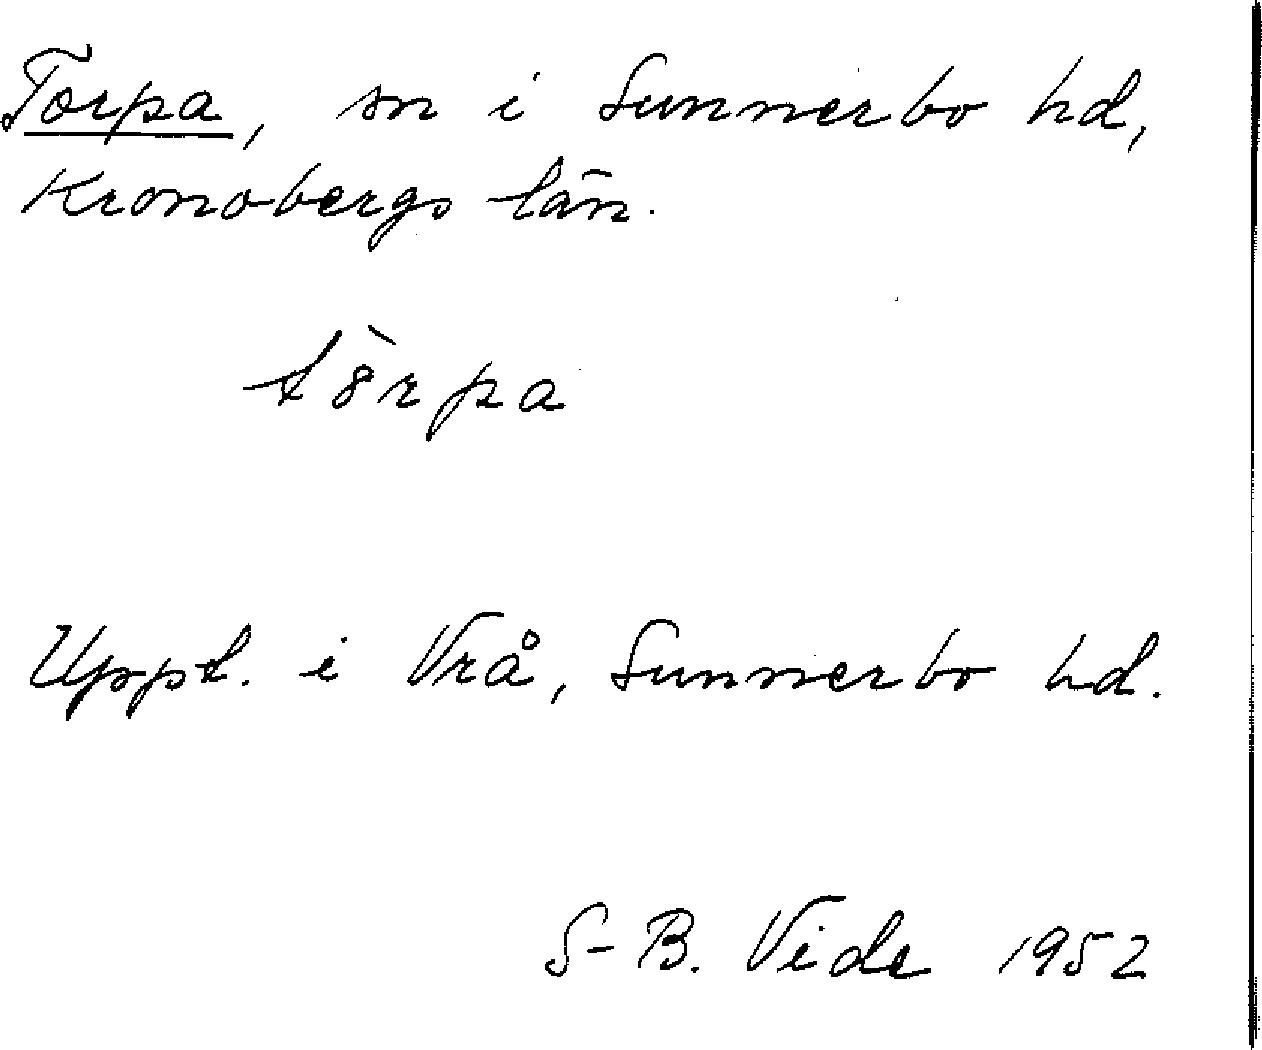 Torpa, sn i Sunnerbo hd,
Kronobergs län.
t8̀rpa
Uppt. i Vrå, Sunnerbo hd.
S-B. Vide 1952